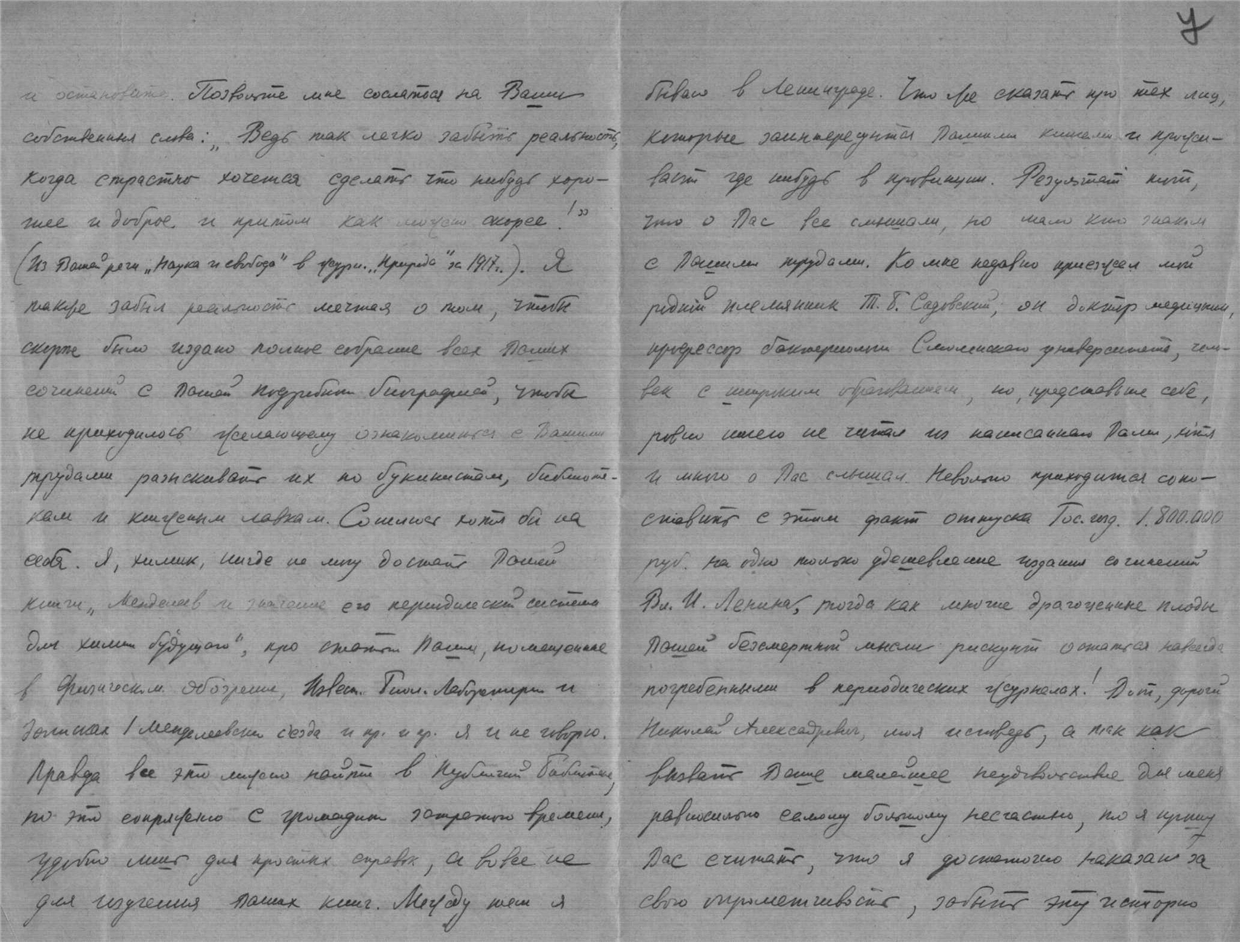 и остановить. Позвольте мне сослаться на Ваши
собственные слова: „Ведь так легко забыть реальность,
когда страстно хочется сделать что нибудь хоро-
шее и доброе и притом как можно скорее!"
(Из Вашей речи „Наука и свобода" в журн. „Природа" за 1917 г.). Я
также забыл реальность мечтая о том, чтобы
скорее было издано полное собрание всех Ваших
сочинений с Вашей подробной биографией, чтобы
не приходилось желающему ознакомиться с Вашими
трудами разыскивать их по букинистам, библиоте-
кам и книжным лавкам. Сошлюсь хотя бы на
себя. Я, химик, нигде не могу достать Вашей
книги „Менделеев и значение его периодической системы
для химии будущего", про статьи Ваши, помещенные
в Физическом Обозрении, Извест. Биол. Лаборатории и
Записках I Менделеевского съезда и пр. и пр. я и не говорю.
Правда все это можно найти в Публичной Библиотеке,
но это сопряжено с громадной затратой времени,
удобно лишь для простых справок, а вовсе не
для изучения Ваших книг. Между тем я
7
бываю в Ленинграде. Что же сказать про тех лиц,
которые заинтересуются Вашими книгами и прожи-
вают где нибудь в провинции. Результат тот,
что о Вас все слышали, но мало кто знаком
с Вашими трудами. Ко мне недавно приезжал мой
родной племянник Т. Б. Садовский; он доктор медицины,
профессор бактериологии Смоленского университета, чело-
век с широким образованием, но, представьте себе,
ровно ничего не читал из написанного Вами, хотя
и много о Вас слышал. Невольно приходится сопо-
ставить с этим факт отпуска Гос. изд. 1.800.000
руб. на одно только удешевление издания сочинений
Вл. И. Ленина, тогда как многие драгоценные плоды
Вашей безсмертной мысли рискуют остаться навсегда
погребенными в периодических журналах! Вот, дорогой
Николай Александрович, моя исповедь, а так как
вызвать Ваше малейшее неудовольствие для меня
равносильно самому большому несчастью, то я прошу
Вас считать, что я достаточно наказан за
свою опрометчивость, забыть эту историю